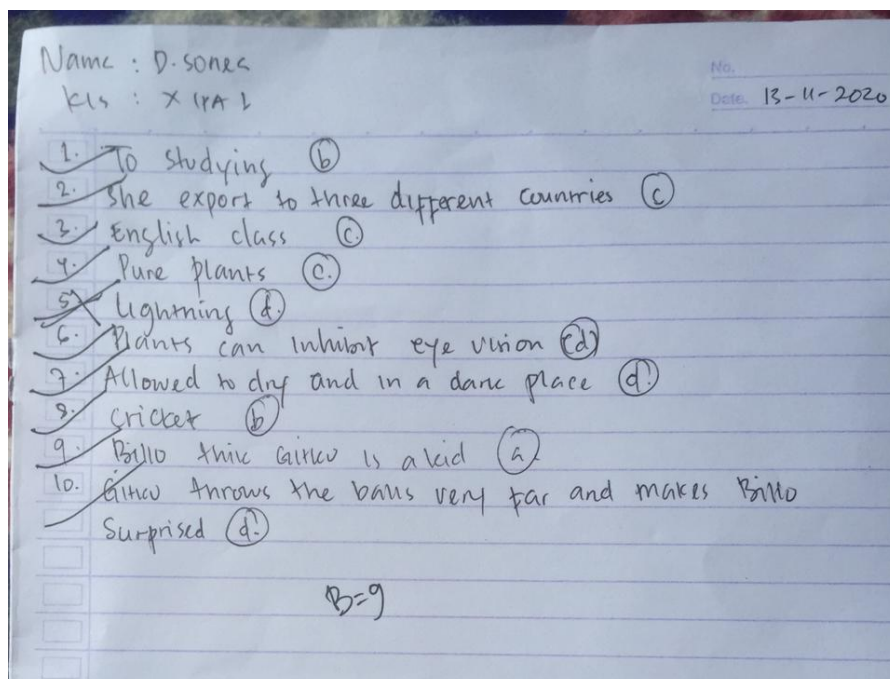 Name : D. sones
No.
Kls : X IPA 1
Date. 13-11-2020
1. To studying (b)
2. She export to three different countries (c)
3. English class (c.)
4. Pure plants (c.)
5. Lightning (d.)
6. Plants can inhibit eye vision (d)
7. Allowed to dry and in a dark place (d.)
8. Cricket (b)
9. Billo is a kid (a)
10. throws the balls very far and makes Billo
Surprised (d.)
B=9